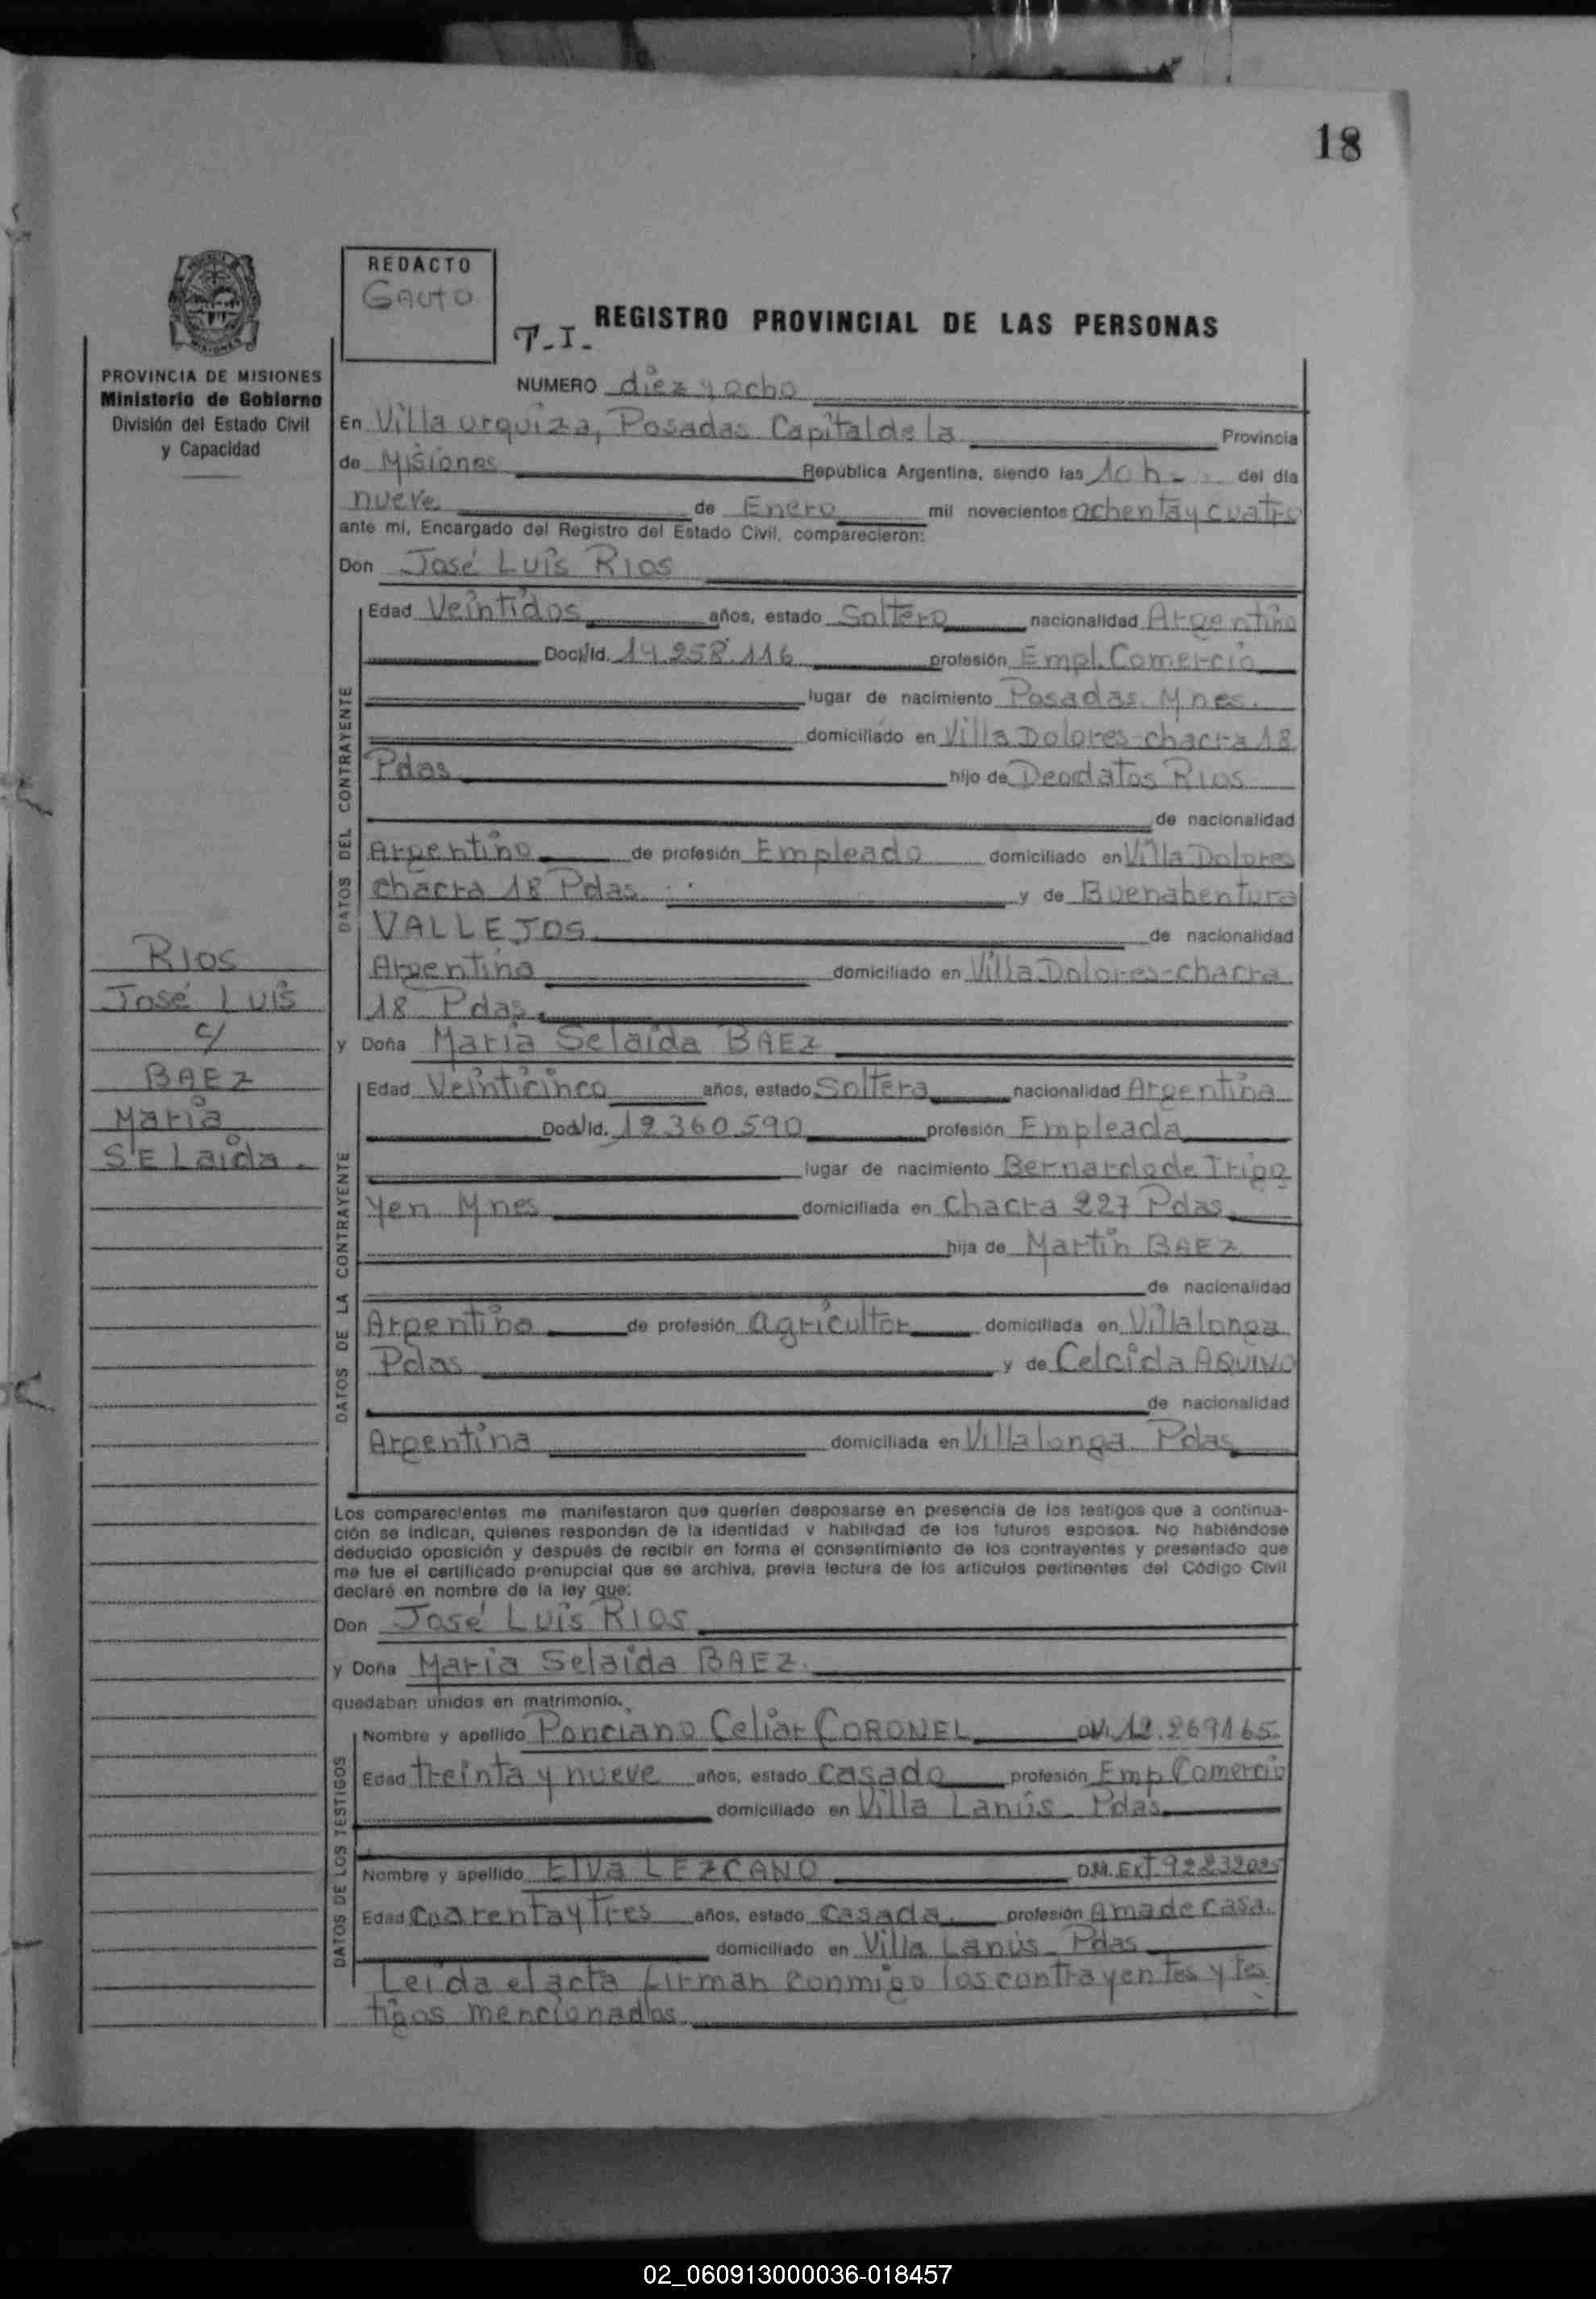 18
REDACTO
Gauto
T.I.
REGISTRO PROVINCIAL DE LAS PERSONAS
PROVINCIA DE MISIONES
Ministerio de Gobierno
División del Estado Civil
y Capacidad
NUMERO diez y ocho
En Villa Urquiza, Posadas Capital de la Provincia
de Misiones República Argentina, siendo las 10 h- del día
nueve de Enero mil novecientos ochenta y cuatro
ante mi, Encargado del Registro del Estado Civil, comparecieron:
Don José Luis Rios
DATOS DEL CONTRAYENTE
Edad Veintidos años, estado Soltero nacionalidad Argentino
Doc. Id. 14.258.116 profesión Empl. Comercio
lugar de nacimiento Posadas. Mnes.
domiciliado en Villa Dolores-chacra 18
Pdas hijo de Deordatos Rios
de nacionalidad
Argentino de profesión Empleado domiciliado en Villa Dolores
chacra 18 Pdas. y de Buenabentura
VALLEJOS de nacionalidad
Argentina domiciliado en Villa Dolores-chacra
18 Pdas.
y Doña Maria Selaida BAEZ
DATOS DE LA CONTRAYENTE
Edad Veinticinco años, estado Soltera nacionalidad Argentina
Doc. Id. 12.360.590 profesión Empleada
lugar de nacimiento Bernardo de Irigo
yen Mnes domiciliada en Chacra 227 Pdas.
hija de Martin BAEZ
de nacionalidad
Argentino de profesión agricultor domiciliada en Villalonga
Pdas y de Celcida AQUINO
de nacionalidad
Argentina domiciliada en Villalonga Pdas
Los comparecientes me manifestaron que querían desposarse en presencia de los testigos que a continua-
ción se indican, quienes responden de la identidad y habilidad de los futuros esposos. No habiéndose
deducido oposición y después de recibir en forma el consentimiento de los contrayentes y presentado que
me fue el certificado prenupcial que se archiva, previa lectura de los artículos pertinentes del Código Civil
declaré en nombre de la ley que:
Don José Luis Rios
y Doña Maria Selaida BAEZ.
quedaban unidos en matrimonio.
DATOS DE LOS TESTIGOS
Nombre y apellido Ponciano Celiar CORONEL 12.269165.
Edad treinta y nueve años, estado casado profesión Emp Comercio
domiciliado en Villa Lanús. Pdas
Nombre y apellido Elva LEZCANO
Edad Cuarenta y Tres años, estado casada. profesión Ama de casa.
domiciliado en Villa Lanús. Pdas
Leida el acta firman conmigo los contrayentes y tes
tigos mencionados
Rios
José Luis
c/
BAEZ
Maria
SELaida.
02_060913000036-018457